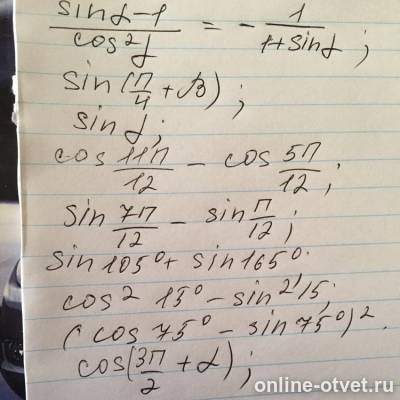 sinα-1/cos²α = - 1/1+sinα;
sin(π/4 + β);
sinα;
cos 11π/12 - cos 5π/12;
sin 7π/12 - sin π/12;
sin105°+ sin165°.
cos² 15° - sin²15;
(cos 75° - sin 75°)².
cos(3π/2 + α);
online-otvet.ru